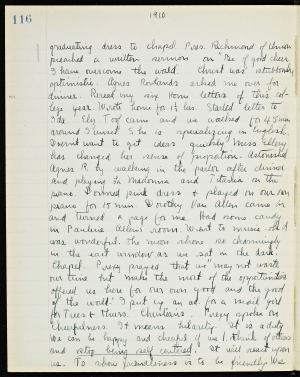 116
1910
graduating dress to chapel. Pres. Richmond of Union
preached a written sermon on "Be of good cheer
I have overcome the world. Christ was
optimistic. Agnes Rowlands asked me over for
dinner. Reread my Home letters of this col-
lege year. Wrote home for 1½ hrs. Started letter to
Ida. came and we walked for 45 min
around Sunset. She is specializing in English.
Doesn't want to get ideas quickly. Miss Ellery
has changed her sense of proportion. Astonished
Agnes R. by walking in the parlor after dinner
and playing La Madonna and on the
piano. Donned pink dress & played on our own
piano for 15 min. Dorothy Van Allen came in
and turned a page for me. Had some candy
in Pauline Allen's room. Went to music and it
was wonderful. The moon shone so charmingly
in the east window as we sat in the dark.
Chapel. Prexy prayed that we may not waste
our time but make the most of the opportunities
offered us here for our own good and the good
of the world. I put up an ad. for a mail girl
for Tues & Thurs. Christians. Prexy spoke on
Cheerfulness. It means hilarity. It is a duty
We can be happy and cheerful if we think of others
and stop being self centred. It will react upon
us. To show friendliness is to be friendly. We